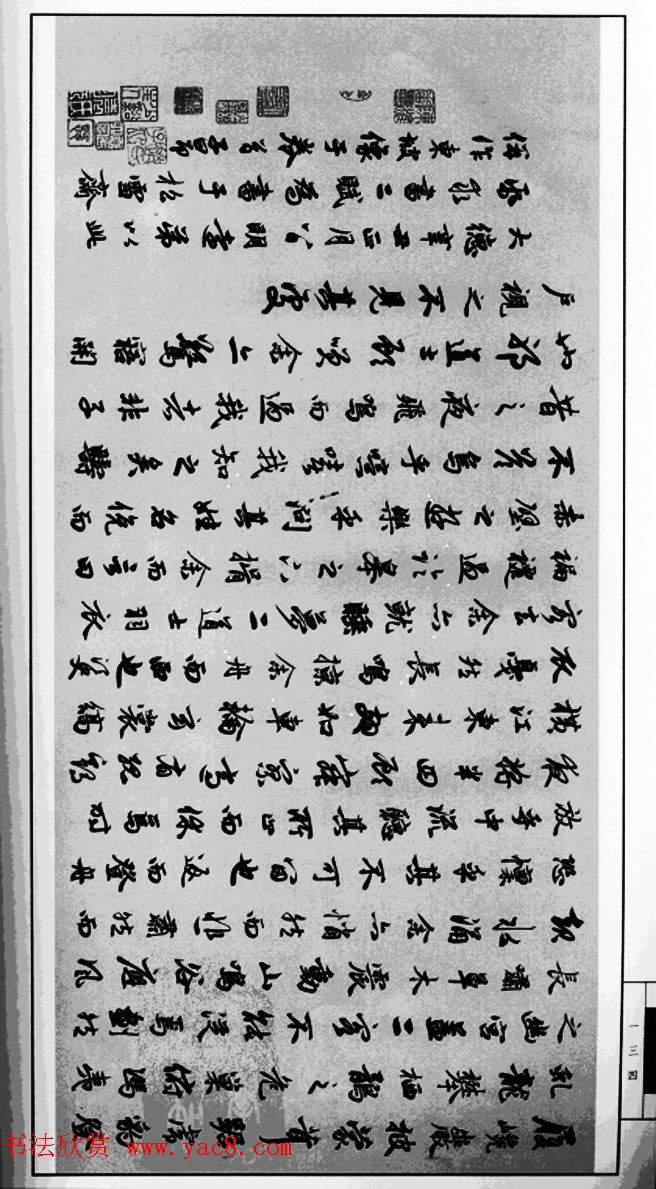 履巉巖披蒙茸踞虎豹登
虬龍攀栖鶻之危巢俯馮夷
之幽宮蓋二客不能從焉劃然
長嘯草木震動山鳴谷應風
起水涌余亦悄然而悲肅然而
恐懍乎其不可留也返而登舟
放乎中流聽其所止而休焉時
夜將半四顧寂寥適有孤鶴
橫江東來翅如車輪玄裳縞
衣戛然長鳴掠余舟而西也須臾
客去余亦就睡夢二道士羽衣
蹁躚過臨皋之下揖余而言曰
赤壁之遊樂乎問其姓名俛而
不答嗚乎噫嘻我知之矣疇
昔之夜飛鳴而過我者非子
也邪道士顧笑余亦驚寤開
戶視之不見其處
大德辛丑正月八日明遠弟以此
紙求書二賦為書于松雪齋
併作東坡像于卷首子昂
一三四
书法欣赏 www.yac8.com